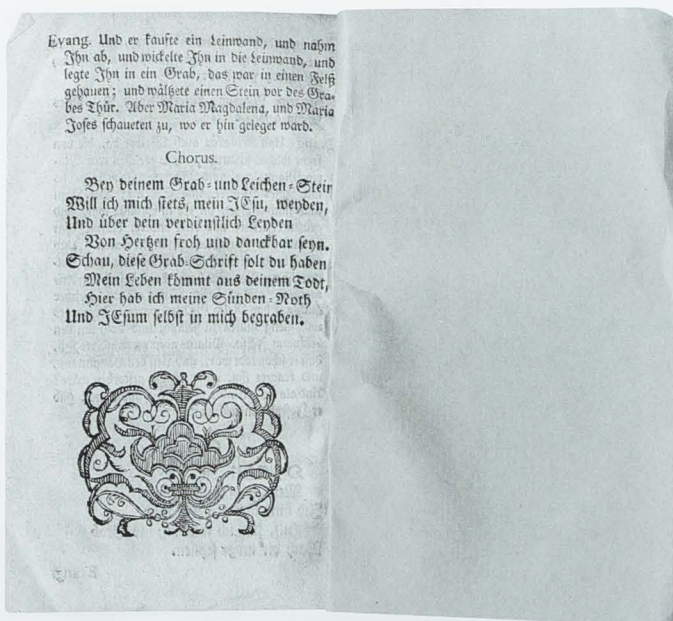 Evang. Und er kaufte ein Leinwand, und nahm
Ihn ab, und wickelte Ihn in die Leinwand, und
legte Ihn in ein Grab, das war in einen Felß
gehauen; und wältzete einen Stein vor des Gra-
bes Thür. Aber Maria Magdalena, und Maria
Joses schaueten zu, wo er hin geleget ward.
Chorus.
Bey deinem Grab- und Leichen-Stein
Will ich mich stets, mein JEsu, weyden,
Und über dein verdienstlich Leyden
Von Hertzen froh und danckbar seyn.
Schau, diese Grab-Schrift solt du haben
Mein Leben kömmt aus deinem Todt,
Hier hab ich meine Sünden-Noth
Und JEsum selbst in mich begraben.